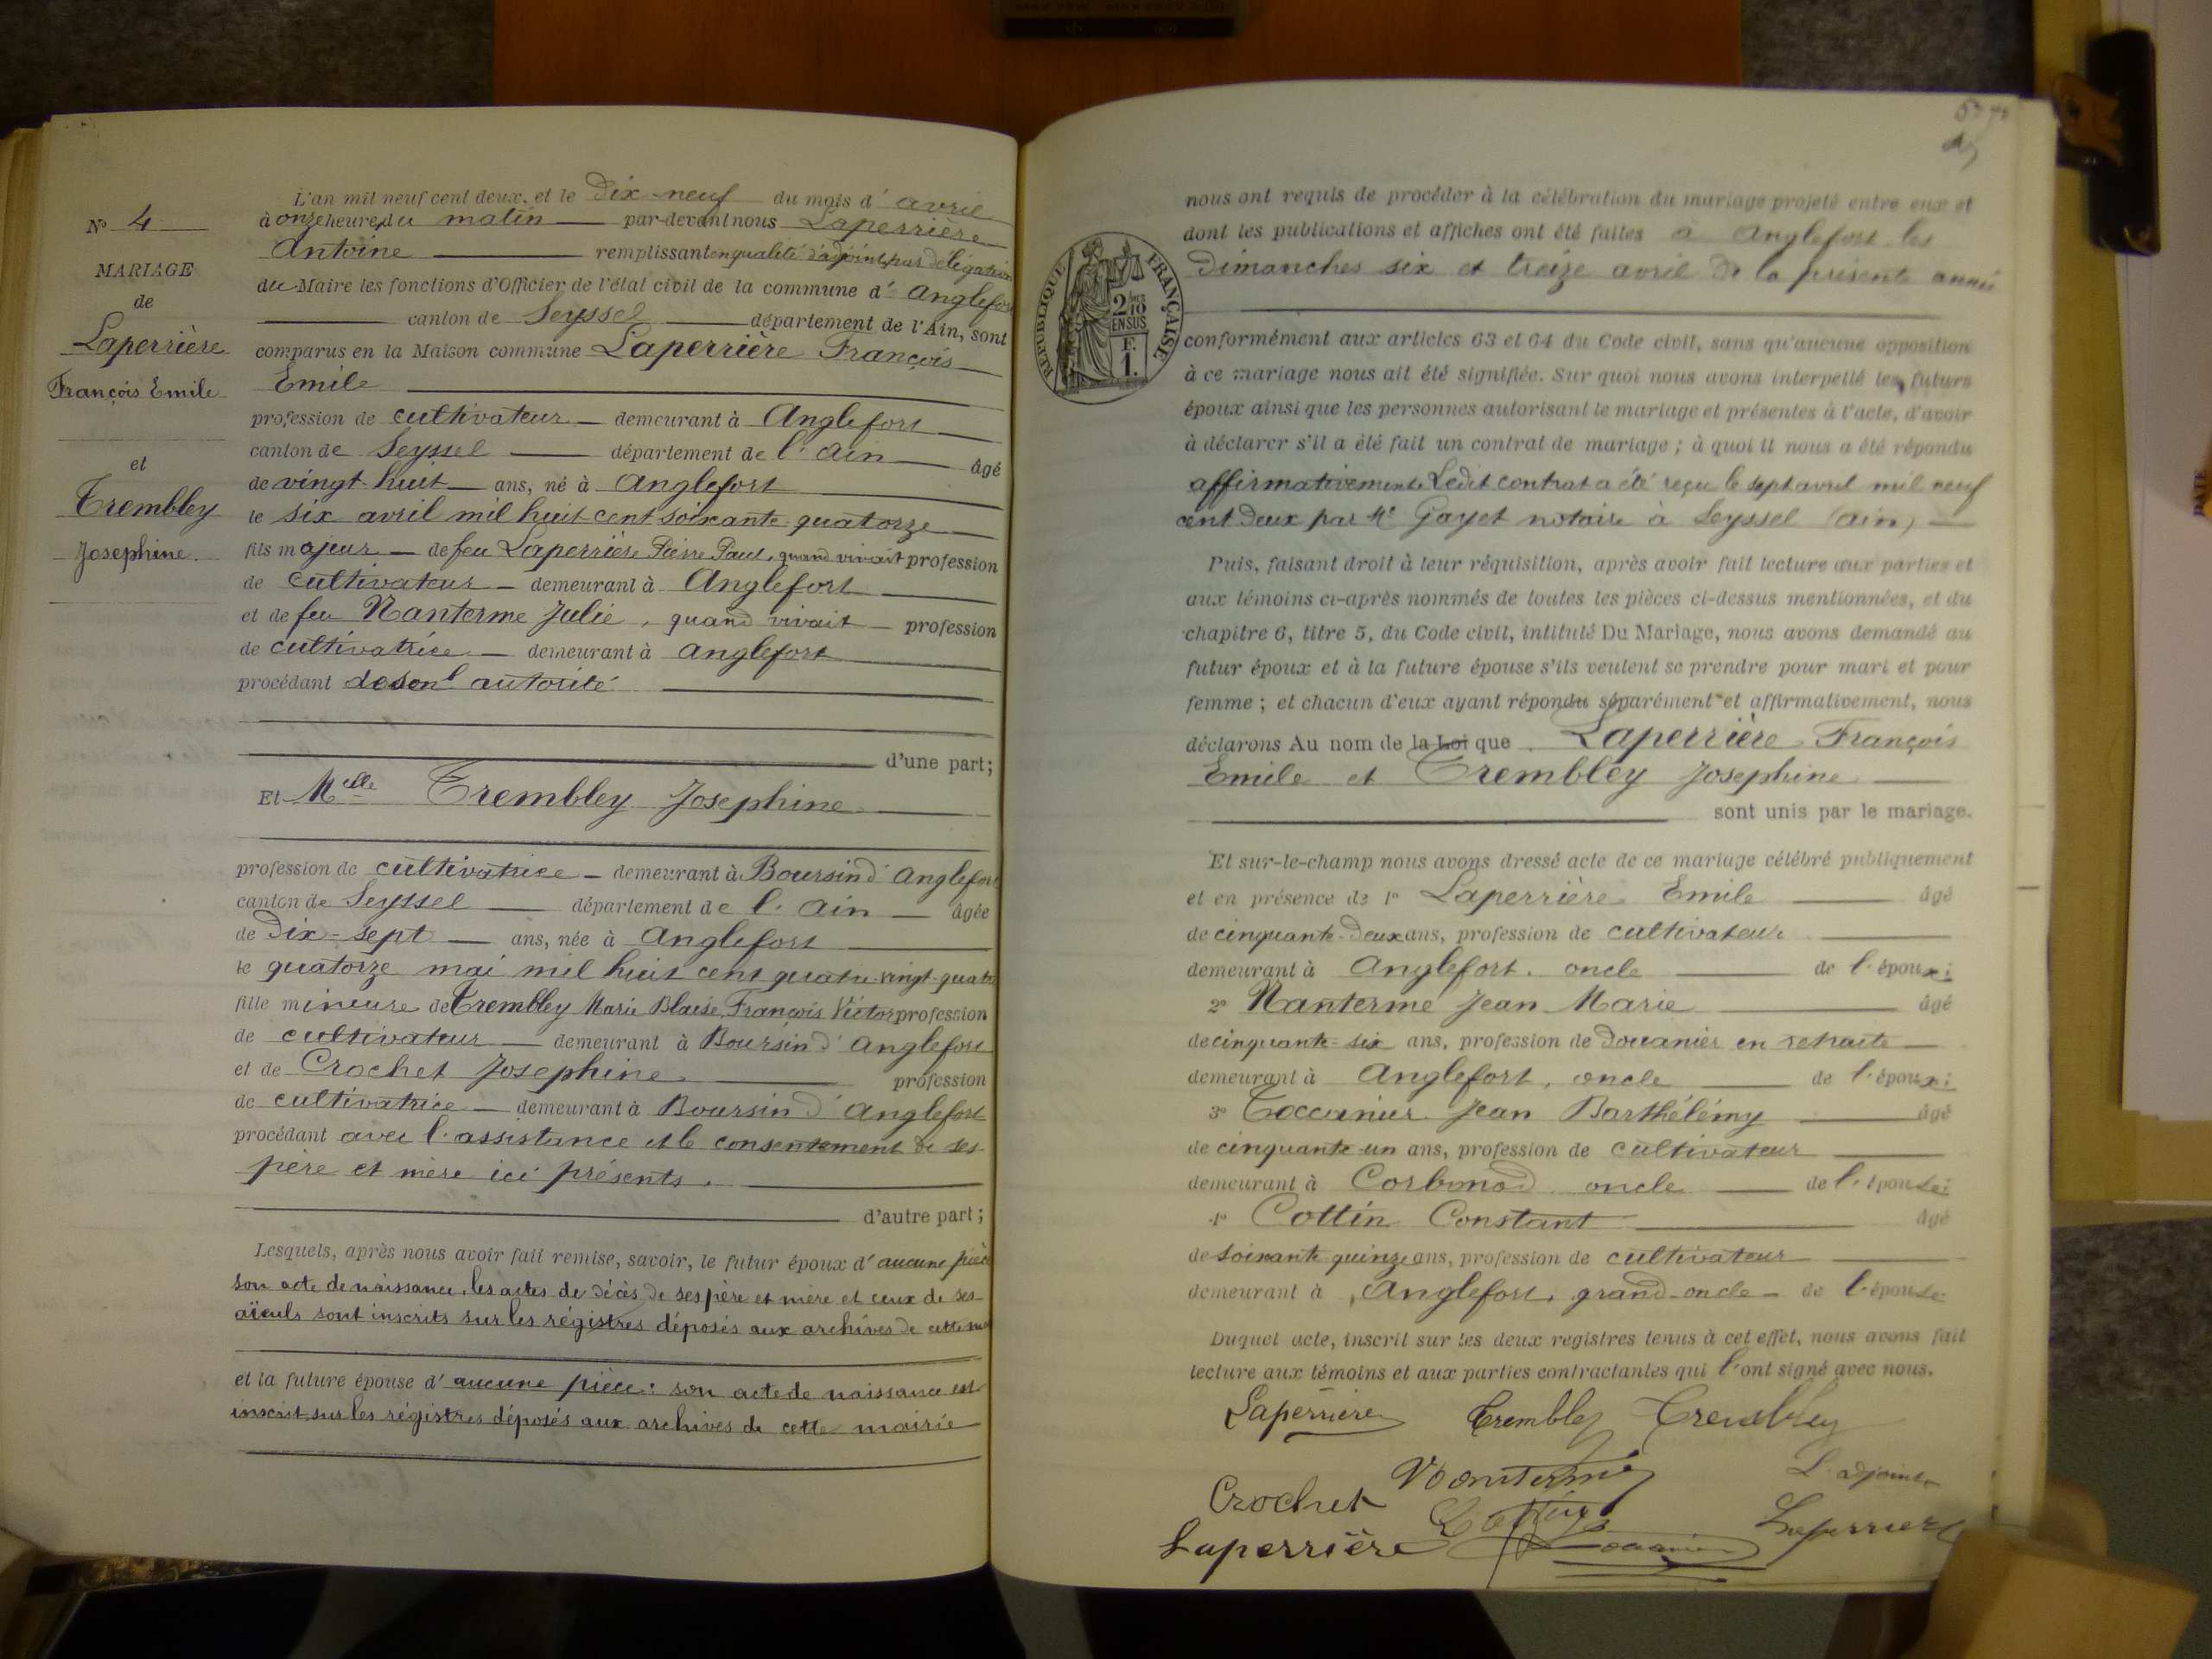 N° 4
MARIAGE
de
Laperrière
François Emile
et
Trembley
Josephine.
L'an mil neuf cent deux, et le Dix-neuf du mois d' avril
à onze heures du matin par-devant nous Laperrière
Antoine remplissant en qualité d'adjoint, par délégation
du Maire les fonctions d'Officier de l'état civil de la commune d' Anglefort
canton de Seyssel département de l'Ain, sont
comparus en la Maison commune Laperrière François
Emile
profession de cultivateur demeurant à Anglefort
canton de Seyssel département de l'Ain âgé
de vingt-huit ans, né à Anglefort
le six avril mil huit cent soixante-quatorze
fils majeur de feu Laperrière Pierre Paul, quand vivait profession
de cultivateur demeurant à Anglefort
et de feu Nanterme Julie, quand vivait profession
de cultivatrice demeurant à Anglefort
procédant de son autorité
d'une part;
Et Melle Trembley Josephine
profession de cultivatrice demeurant à Boursin d' Anglefort
canton de Seyssel département de l'Ain âgée
de Dix-sept ans, née à Anglefort
le quatorze mai mil huit cent quatre-vingt-quatre
fille mineure de Trembley Marie Blaise, François Victor profession
de cultivateur demeurant à Boursin d' Anglefort
et de Crochet Josephine profession
de cultivatrice demeurant à Boursin d' Anglefort
procédant avec l'assistance et le consentement de ses
père et mère ici présents.
d'autre part;
Lesquels, après nous avoir fait remise, savoir, le futur époux d' aucune pièce
son acte de naissance, les actes de décès de ses père et mère et ceux de ses
aïeuls sont inscrits sur les régistres déposés aux archives de cette
et la future épouse d' aucune pièce: son acte de naissance est
inscrit sur les régistres déposés aux archives de cette mairie
nous ont requis de procéder à la célébration du mariage projeté entre eux et
dont les publications et affiches ont été faites à Anglefort les
Dimanches six et treize avril de la présente année
RÉPUBLIQUE FRANÇAISE
2/10
EN SUS
F.
1.
conformément aux articles 63 et 64 du Code civil, sans qu'aucune opposition
à ce mariage nous ait été signifiée. Sur quoi nous avons interpellé les futurs
époux ainsi que les personnes autorisant le mariage et présentes à l'acte, d'avoir
à déclarer s'il a été fait un contrat de mariage; à quoi il nous a été répondu
affirmativement. Ledit contrat a été reçu le sept avril mil neuf
cent deux par Me Gayet notaire à Seyssel (Ain)
Puis, faisant droit à leur réquisition, après avoir fait lecture aux parties et
aux témoins ci-après nommés de toutes les pièces ci-dessus mentionnées, et du
chapitre 6, titre 5, du Code civil, intitulé Du Mariage, nous avons demandé au
futur époux et à la future épouse s'ils veulent se prendre pour mari et pour
femme; et chacun d'eux ayant répondu séparément et affirmativement, nous
déclarons Au nom de la Loi que Laperrière François
Emile et Trembley Josephine
sont unis par le mariage.
Et sur-le-champ nous avons dressé acte de ce mariage célébré publiquement
et en présence de 1° Laperrière Emile âgé
de cinquante-deux ans, profession de cultivateur
demeurant à Anglefort, oncle de l'époux;
2° Nanterme Jean Marie âgé
de cinquante-six ans, profession de Douanier en retraite
demeurant à Anglefort, oncle de l'époux;
3° Toccanier Jean Barthélémy âgé
de cinquante-un ans, profession de cultivateur
demeurant à Corbonod, oncle de l'épouse;
4° Cottin Constant âgé
de soixante-quinze ans, profession de cultivateur
demeurant à Anglefort, grand-oncle de l'épouse
Duquel acte, inscrit sur les deux registres tenus à cet effet, nous avons fait
lecture aux témoins et aux parties contractantes qui l'ont signé avec nous.
Laperrière Trembley Trembley
Crochet Nanterme L'adjoint
Laperrière Cottin Toccanier Laperrière